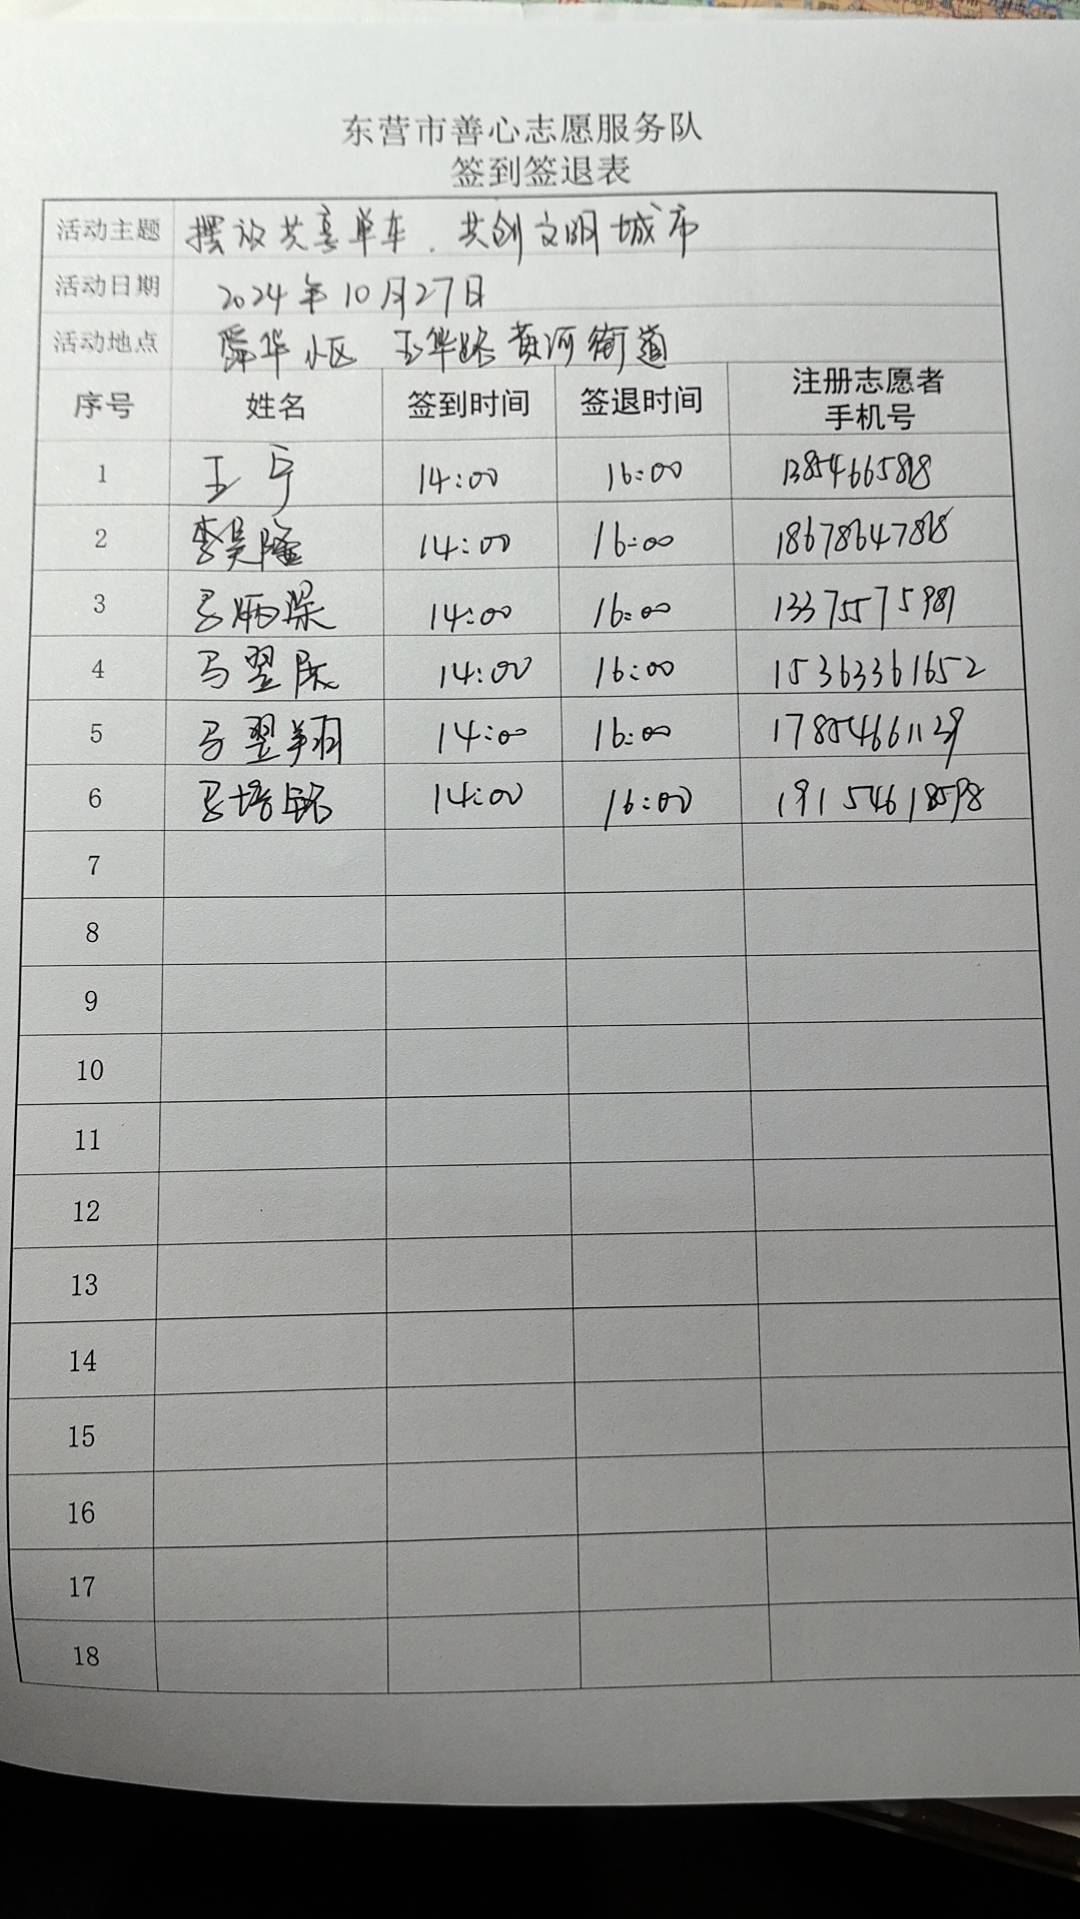 东营市善心志愿服务队
签到签退表
活动主题 摆放共享单车.共创文明城市
活动日期 2024年10月27日
活动地点 舜华小区 玉华路黄河街道
序号 姓名 签到时间 签退时间 注册志愿者
手机号
1 王宁 14:00 16:00
2 李昊隆 14:00 16:00 18678647818
3 马炳梁 14:00 16:00 13375575987
4 马翌宸 14:00 16:00 15363361652
5 马翌翔 14:00 16:00
6 马培铭 14:00 16:00 19154618598
7
8
9
10
11
12
13
14
15
16
17
18